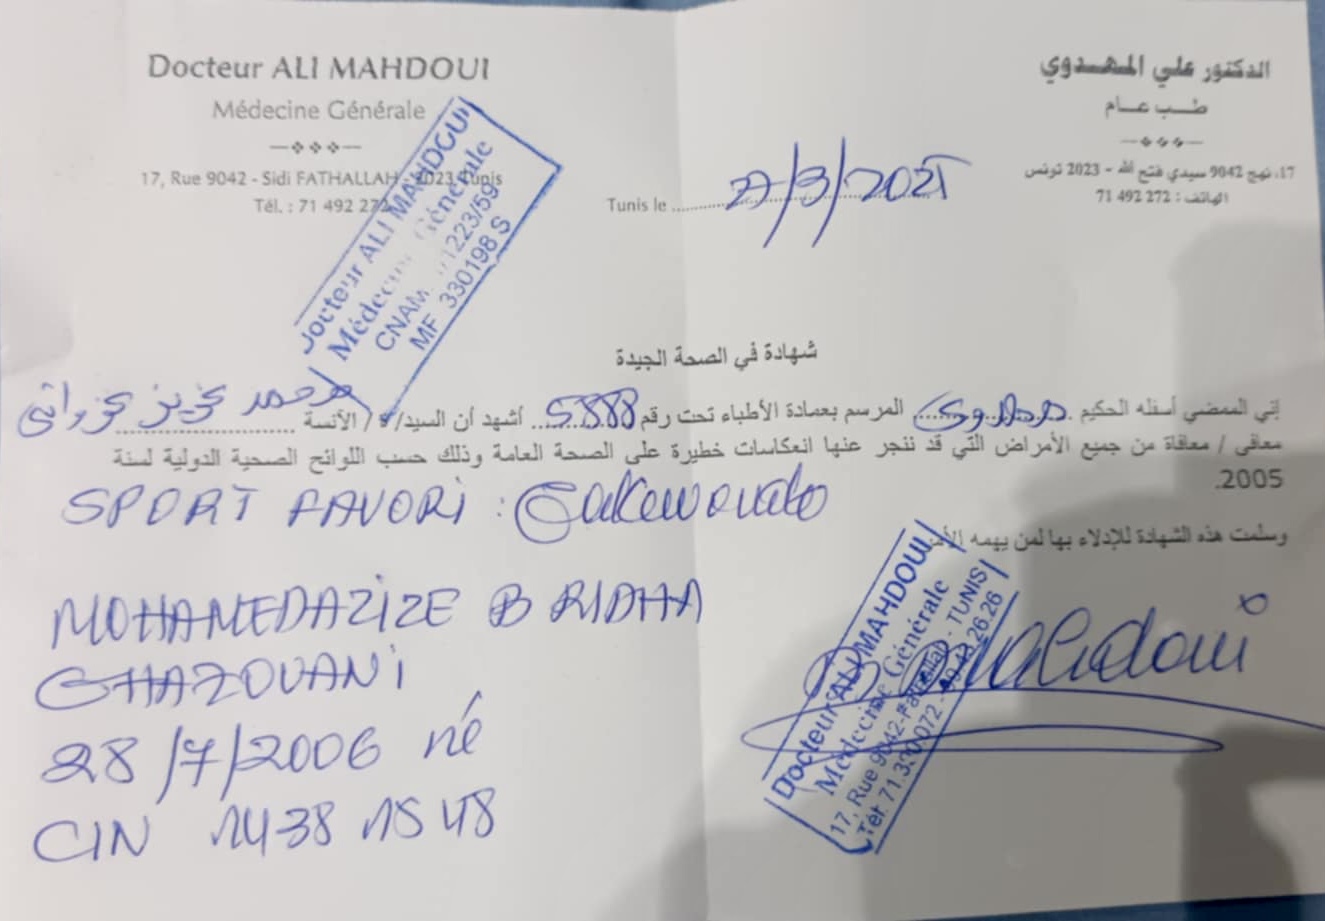 Docteur ALI MAHDOUI
Médecine Générale
17, Rue 9042 - Sidi FATHALLAH - 2023 Tunis
Tél. : 71 492 272
الدكتور علي المهدوي
طب عام
17، نهج 9042 سيدي فتح الله - 2023 تونس
الهاتف : 272 492 71
Docteur ALI MAHDOUI
Médecine Générale
CNAM 1223/59
MF 330198 S
Tunis le 27/3/2025
شهادة في الصحة الجيدة
إني الممضي أسفله الحكيم مهداوي المرسم بعمادة الأطباء تحت رقم 5888 أشهد أن السيد/ة / الآنسة محمد عزيز غزواني
معافى / معافاة من جميع الأمراض التي قد تنجر عنها انعكاسات خطيرة على الصحة العامة وذلك حسب اللوائح الصحية الدولية لسنة
2005.
SPORT FAVORI :
وسلمت هذه الشهادة للإدلاء بها لمن يهمه الأمر
MOHAMEDAZIZE B RIDHA
GHAZOUANI
28/7/2006 né
CIN 14381548
Mahdoui
Docteur ALI MAHDOUI
Médecine Générale
17, Rue 9042-Fathallah - TUNIS
Tél: 71.3